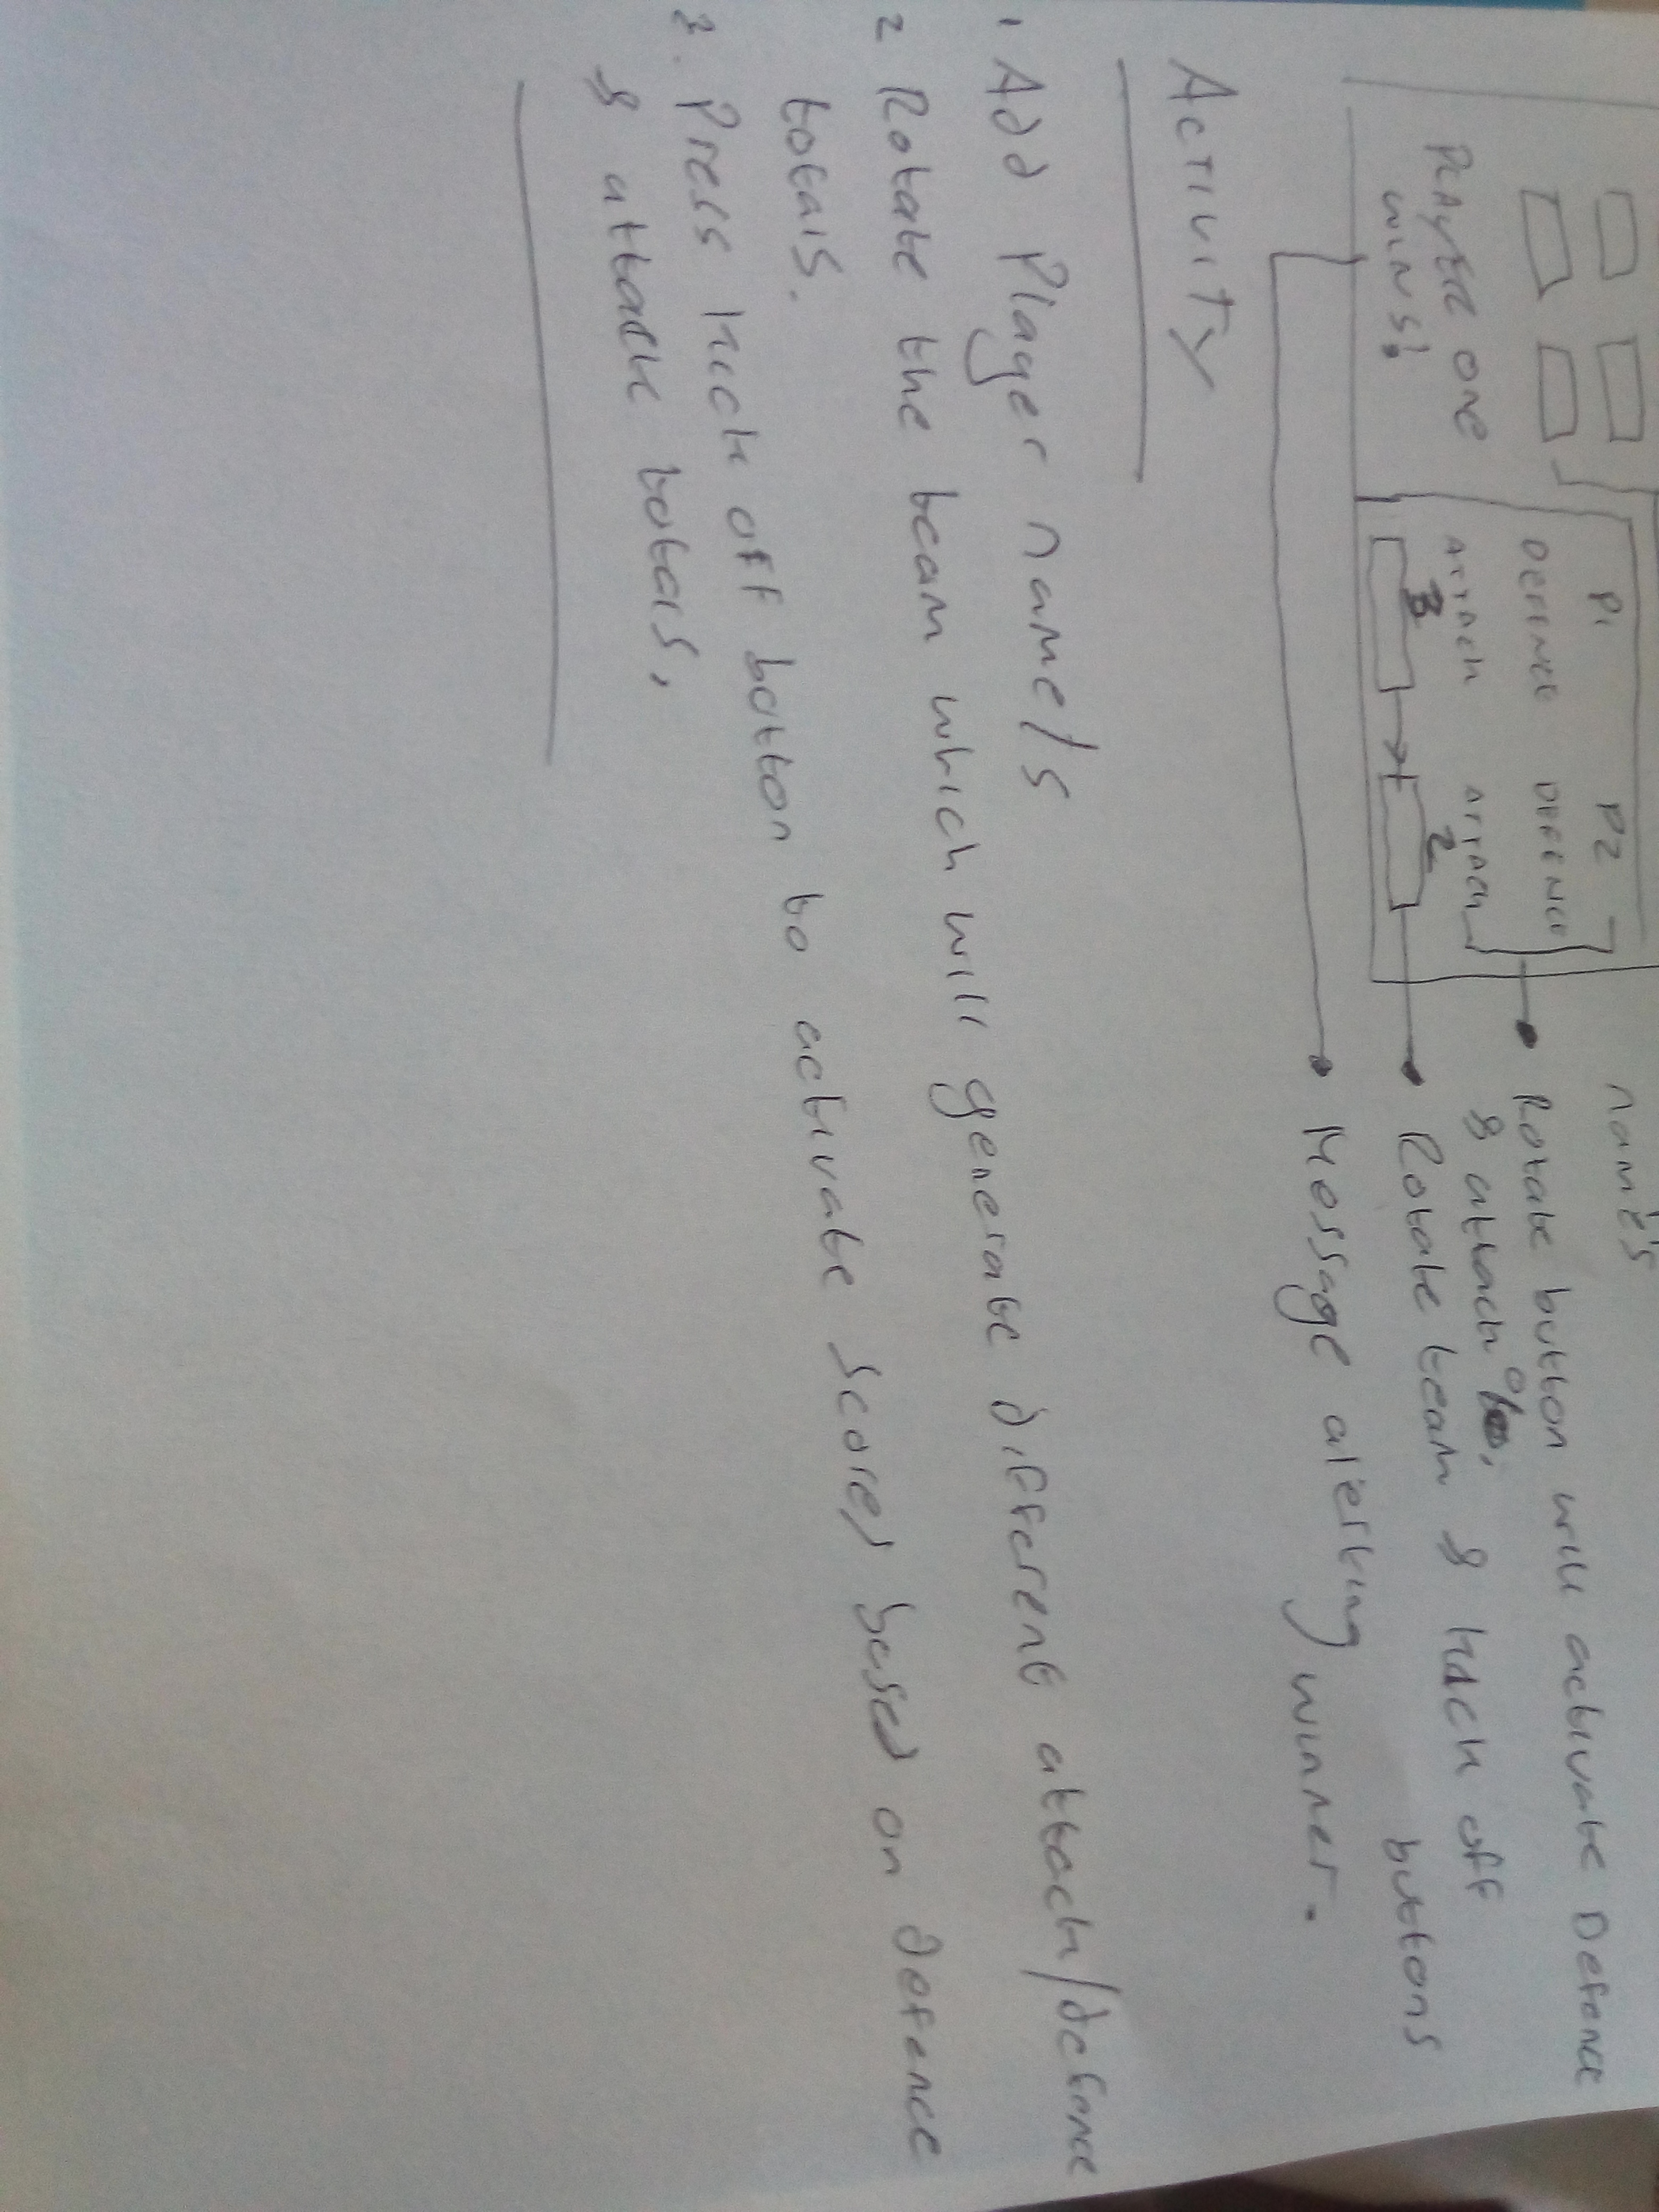 names
P1 P2
DEFENCE DEFENCE
Rotate button will activate Defence
& attack %.
ATTACK ATTACK
PLAYER one
WINS!
3 2
Rotate team & kick off
buttons
Message alerting winner.
ACTIVITY
1 Add Player name/s
2 Rotate the team which will generate different attack/defence
totals.
3. Press kick off button to activate scores based on defence
& attack totals.